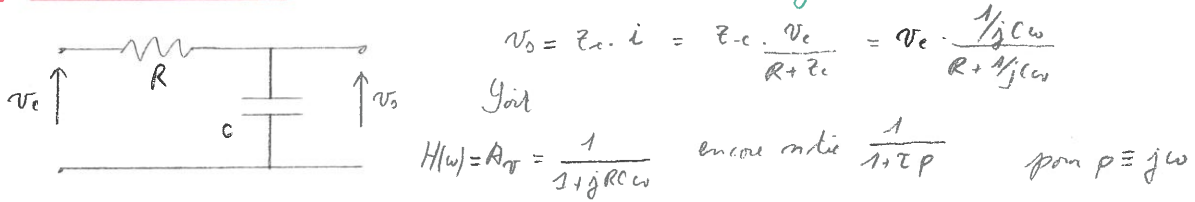 v_s = Z_c . i = Z_c . v_e / (R + Z_c) = v_e . (1/jCω) / (R + 1/jCω)
R
v_e
v_s
Soit
C
H(ω) = A_v = 1 / (1 + jRCω) encore notée 1 / (1 + τp) pour p ≡ jω